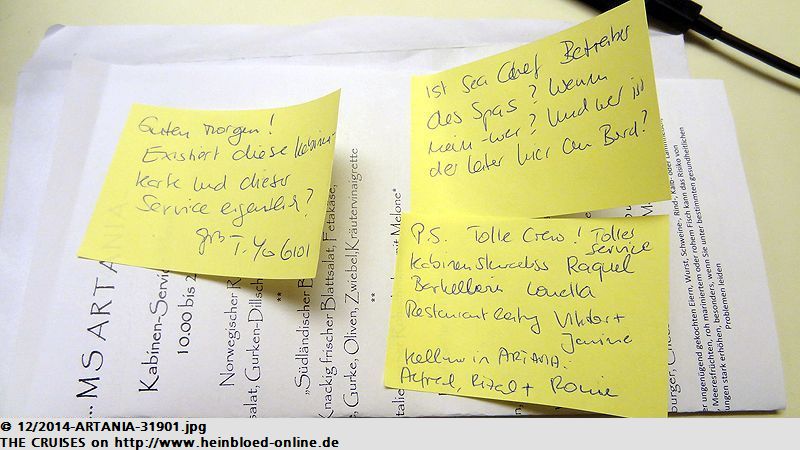 Guten Morgen!
Existiert diese Kabinen-
karte und dieser
Service eigentlich?
T. Yo 6101
Ist Sea Chef Betreiber
des Spas? Wenn
nein - wer? Und wer ist
der Leiter hier an Bord?
P.S. Tolle Crew! Tolles
Service
Kabinenstewardess Raquel
Barkellnerin Louella
Restaurantleitung Viktor +
Janine
Kellner in ARTANIA:
Alfred, Rizal + Ronnie
...MS ARTANIA
Kabinen-Service
10.00 bis 2
Norwegischer R
salat, Gurken-Dillsch
**
„Südländischer B
Knackig frischer Blattsalat, Fetakäse,
, Gurke, Oliven, Zwiebel, Kräutervinaigrette
**
Italie
mit Melone*
burger, C
ungenügend gekochten Eiern, Wurst, Schweine-, Rind-, Kalb- oder Lammfleisch,
Meeresfrüchten, roh mariniertem oder rohem Fisch kann das Risiko von
ungen stark erhöhen, besonders, wenn Sie unter bestimmten gesundheitlichen
Problemen leiden
© 12/2014-ARTANIA-31901.jpg
THE CRUISES on http://www.heinbloed-online.de